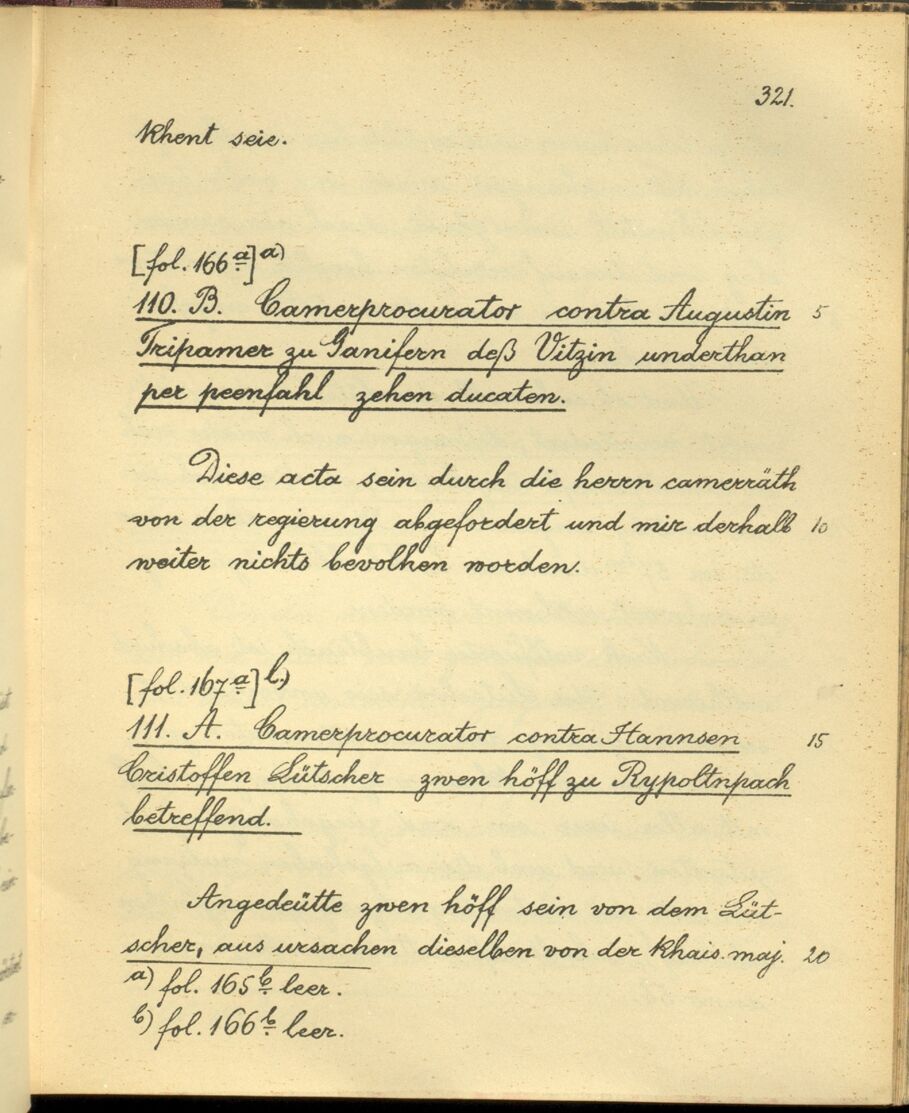 321.
khent seie.
[fol. 166a] a)
110. B. Camerprocurator contra Augustin 5
Tripamer zu Ganifern deß Vitzin underthan
per peenfahl zehen ducaten.
Diese acta sein durch die herrn camerräth
von der regierung abgefordert und mir derhalb 10
weiter nichts bevolhen worden.
[fol. 167a] b)
111. A. Camerprocurator contra Hannsen 15
Cristoffen Lütscher zwen höff zu Rypoltnpach
betreffend.
Angedeütte zwen höff sein von dem Lüt-
scher, aus ursachen dieselben von der khais. maj. 20
a) fol. 165b leer.
b) fol. 166b leer.